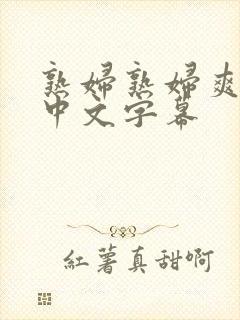 熟婦熟婦爽
中文字幕
紅薯真甜啊